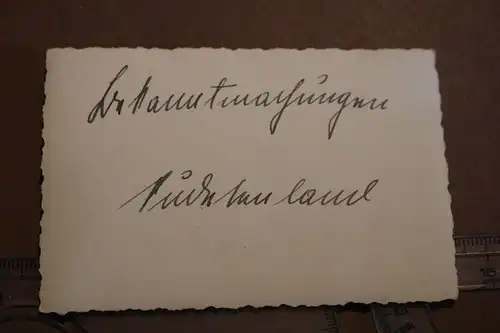 Bekanntmachungen
Sudetenland